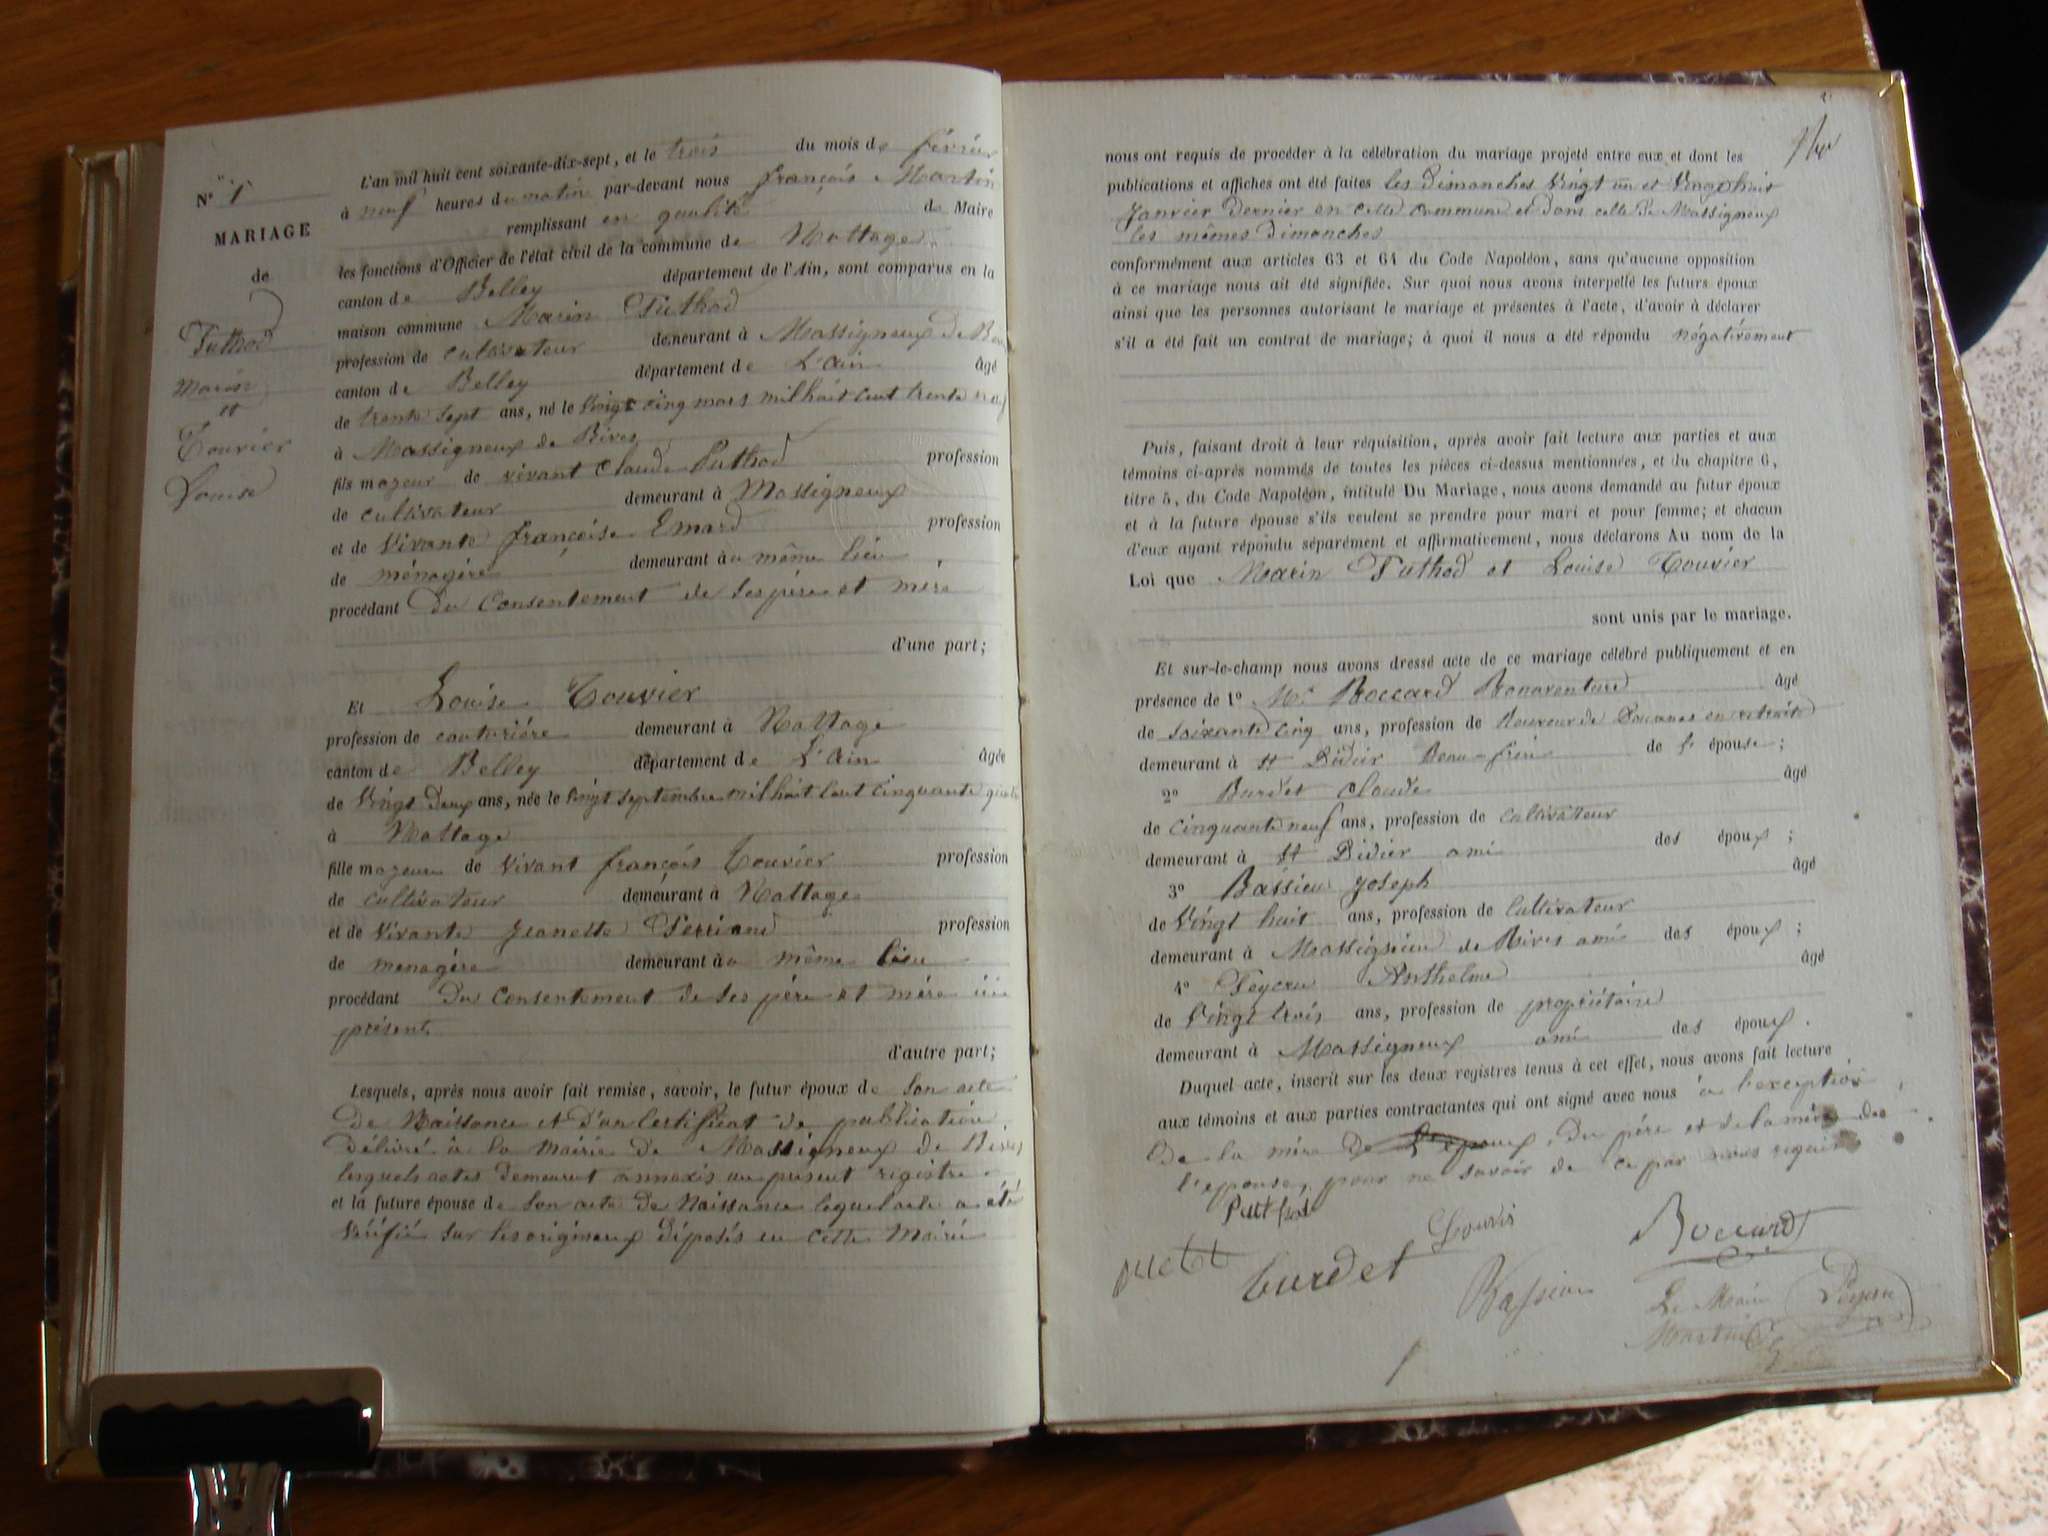 N° 1
MARIAGE
de
Puthod
Marin
et
Touvier
Louise
L'an mil huit cent soixante-dix-sept, et le trois du mois de février
à neuf heures du matin par-devant nous françois Martin
remplissant en qualité de Maire
les fonctions d'Officier de l'état civil de la commune de Nattage
canton de Belley département de l'Ain, sont comparus en la
maison commune Marin Puthod
profession de cultivateur demeurant à Massigneux de
canton de Belley département de L'ain âgé
de trente sept ans, né le vingt cinq mars mil huit cent trente
à Massigneux de Rives
fils majeur de vivant Claude Puthod profession
de cultivateur demeurant à Massigneux
et de vivante françoise Emard profession
de ménagère demeurant au même lieu
procédant du consentement de ses père et mère
d'une part;
Et Louise Touvier
profession de couturière demeurant à Nattage
canton de Belley département de L'ain âgée
de vingt deux ans, née le vingt septembre mil huit cent cinquante quatre
à Nattage
fille majeure de vivant françois Touvier profession
de cultivateur demeurant à Nattage
et de vivante Jeanette profession
de menagère demeurant au même lieu
procédant du consentement de ses père et mère ici
présent
d'autre part;
Lesquels, après nous avoir fait remise, savoir, le futur époux de son acte
de Naissance et d'un certificat de publication
délivré à la Mairie de Massigneux de Rives
lesquels actes demeurent annexés au présent registre
et la future épouse de son acte de Naissance lequel acte a été
vérifié sur les origineaux déposés en cette Mairie
nous ont requis de procéder à la célébration du mariage projeté entre eux et dont les
publications et affiches ont été faites les dimanches vingt un et vingt huit
Janvier dernier en cette commune et dans celle de Massigneux
les mêmes dimanches
conformément aux articles 63 et 64 du Code Napoléon, sans qu'aucune opposition
à ce mariage nous ait été signifiée. Sur quoi nous avons interpellé les futurs époux
ainsi que les personnes autorisant le mariage et présentes à l'acte, d'avoir à déclarer
s'il a été fait un contrat de mariage; à quoi il nous a été répondu négativement
Puis, faisant droit à leur réquisition, après avoir fait lecture aux parties et aux
témoins ci-après nommés de toutes les pièces ci-dessus mentionnées, et du chapitre 6,
titre 5, du Code Napoléon, intitulé Du Mariage, nous avons demandé au futur époux
et à la future épouse s'ils veulent se prendre pour mari et pour femme; et chacun
d'eux ayant répondu séparément et affirmativement, nous déclarons Au nom de la
Loi que Marin Puthod et Louise Touvier
sont unis par le mariage.
Et sur-le-champ nous avons dressé acte de ce mariage célébré publiquement et en
présence de 1° Mr Boccard Bonaventure âgé
de soixante cinq ans, profession de Receveur de Douanes en retraite
demeurant à St Didier Beau-frère de l'épouse;
2° Burdet Claude âgé
de cinquante neuf ans, profession de cultivateur
demeurant à St Didier ami des époux;
3° Bassieu Joseph âgé
de vingt huit ans, profession de cultivateur
demeurant à Massignieu de Rives ami des époux;
4° Peycru Anthelme âgé
de vingt trois ans, profession de propriétaire
demeurant à Massigneux ami des époux.
Duquel acte, inscrit sur les deux registres tenus à cet effet, nous avons fait lecture
aux témoins et aux parties contractantes qui ont signé avec nous à l'exception
de la mère de l'époux, du père et de la mère de
l'épouse, pour ne savoir de ce par nous requis
Puthod
Boccard
burdet
Bassieu
Le Maire
Martin
Peycru